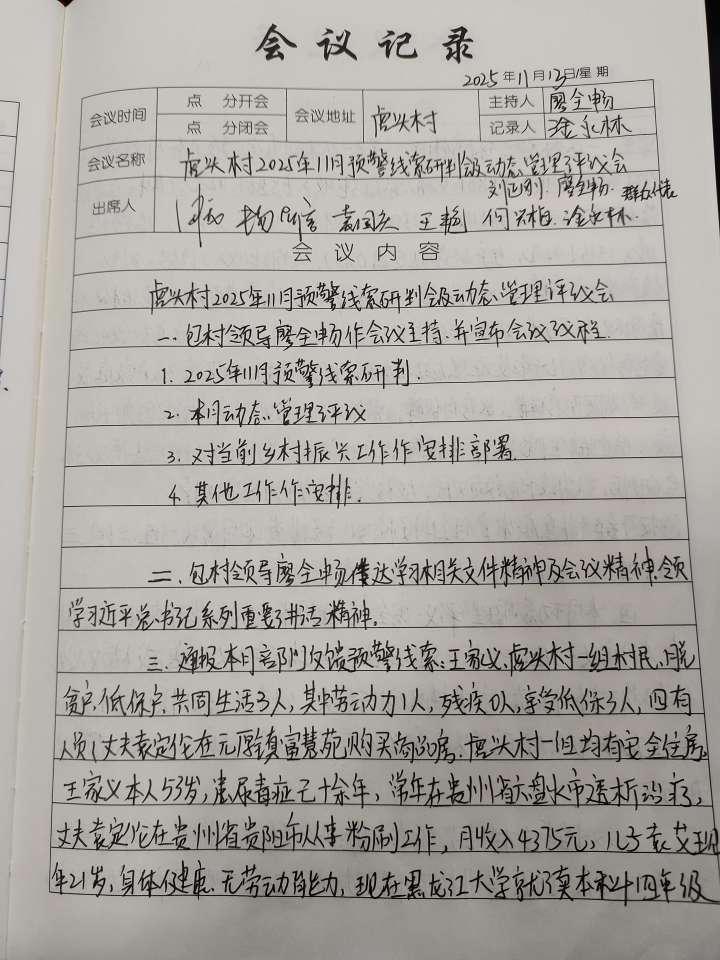 会议记录
2025年11月13日/星期
会议时间 点 分开会 会议地址 虎头村 主持人 廖全畅
点 分闭会 记录人 涂永林
会议名称 虎头村2025年11月预警线索研判会及动态管理评议会
刘正刚 廖全畅 群众代表
出席人 王艳 何兴柱 涂永林
会议内容
虎头村2025年11月预警线索研判会及动态管理评议会
一、包村领导廖全畅作会议主持,并宣布会议议程.
1. 2025年11月预警线索研判.
2. 本月动态管理评议
3. 对当前乡村振兴工作作安排部署.
4. 其他工作作安排.
二、包村领导廖全畅传达学习相关文件精神及会议精神,领
学习近平总书记系列重要讲话精神.
三、通报本月部门反馈预警线索:王家义,虎头村一组村民,脱
贫户、低保户,共同生活3人,其中劳动力1人,残疾0人,享受低保3人,四有
人员1(丈夫袁定伦在元厚镇富慧苑购买商品房,虎头村一组均有安全住房。
王家义本人53岁,患尿毒症已十余年,常年在贵州省六盘水市透析治疗,
丈夫袁定伦在贵州省贵阳市从事粉刷工作,月收入4375元,儿子袁艾现
年21岁,身体健康,无劳动能力,现在黑龙江大学就读本科四年级